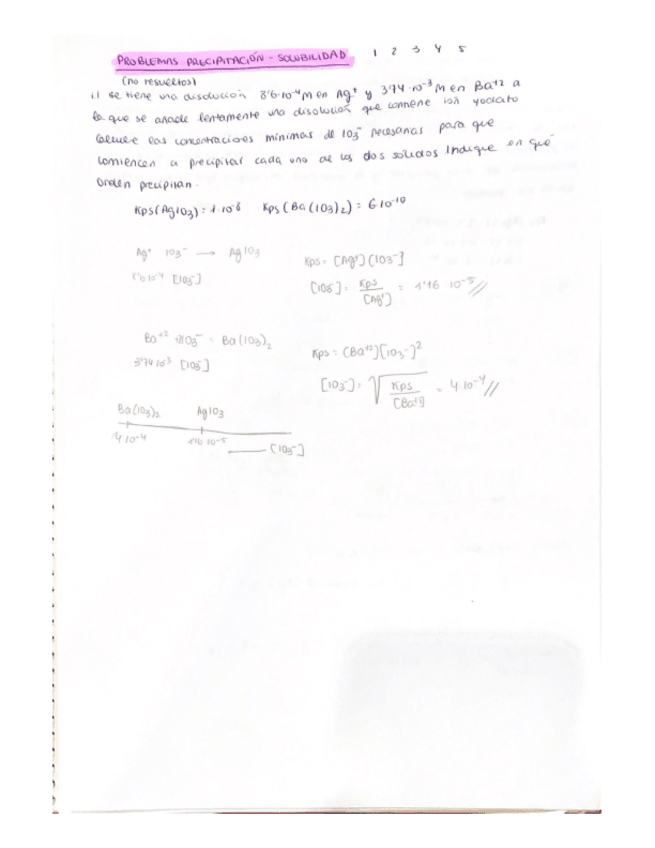 PROBLEMAS PRECIPITACIÓN - SOLUBILIDAD 1 2 3 4 5
(no resueltos)
1.1 Se tiene una disolución 8'6·10⁻⁴M en Ag⁺ y 3'74·10⁻³M en Ba⁺² a
la que se añade lentamente una disolución que contiene ion yodato
Calcule las concentraciones mínimas de IO₃⁻ necesarias para que
comiencen a precipitar cada uno de los dos sólidos Indique en qué
orden precipitan.
Kps(AgIO₃) = 1·10⁻⁸ Kps(Ba(IO₃)₂) = 6·10⁻¹⁰
Ag⁺ IO₃⁻ → AgIO₃
8'6·10⁻⁴ [IO₃⁻]
Kps = [Ag⁺][IO₃⁻]
[IO₃⁻] = Kps / [Ag⁺] = 1'16·10⁻⁵//
Ba⁺² IO₃⁻ Ba(IO₃)₂
3'74·10⁻³ [IO₃⁻]
Kps = [Ba⁺²][IO₃⁻]²
[IO₃⁻] = √ Kps / [Ba⁺²] = 4·10⁻⁴//
Ba(IO₃)₂ AgIO₃
4·10⁻⁴ 1'16·10⁻⁵ [IO₃⁻]